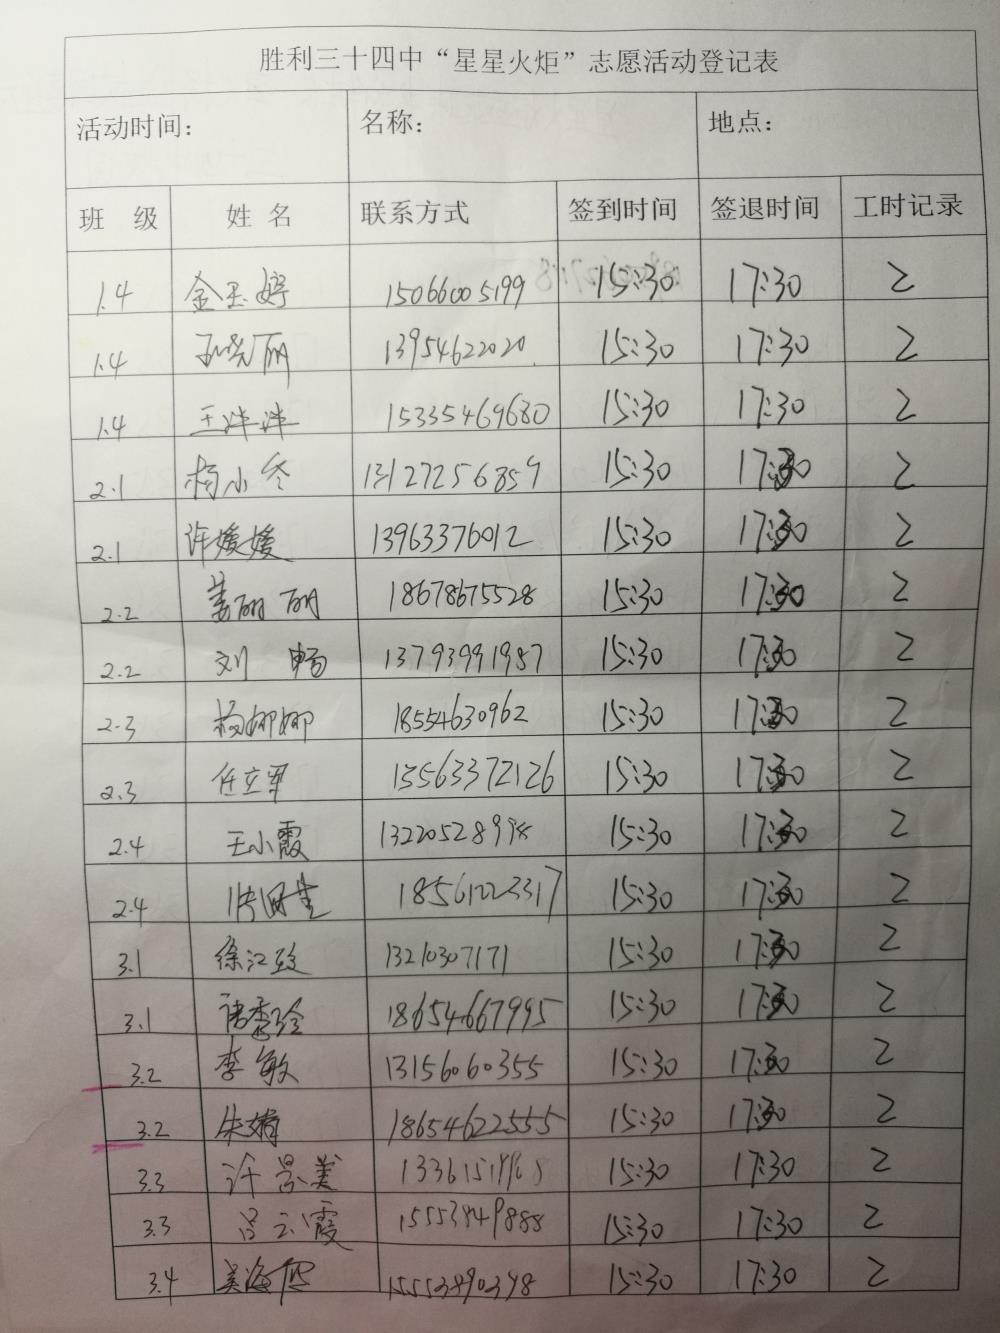 胜利三十四中“星星火炬”志愿活动登记表
活动时间： 名称： 地点：
班 级 姓 名 联系方式 签到时间 签退时间 工时记录
1.4 金玉婷 15066005199 15:30 17:30 2
1.4 孙晓丽 13954622020 15:30 17:30 2
1.4 王泮泮 15335469680 15:30 17:30 2
2.1 杨小冬 13127256859 15:30 17:30 2
2.1 许媛媛 13963376012 15:30 17:30 2
2.2 姜丽丽 18678675528 15:30 17:30 2
2.2 刘 畅 13793991987 15:30 17:30 2
2.3 杨娜娜 18554630962 15:30 17:30 2
2.3 任立军 15563372126 15:30 17:30 2
2.4 王小霞 13220528998 15:30 17:30 2
2.4 18561023317 15:30 17:30 2
3.1 徐江 13210307171 15:30 17:30 2
3.1 18654667995 15:30 17:30 2
3.2 李敏 13156060355 15:30 17:30 2
3.2 朱婧 18654622555 15:30 17:30 2
3.3 许景美 15:30 17:30 2
3.3 吕云霞 15553849888 15:30 17:30 2
3.4 15:30 17:30 2